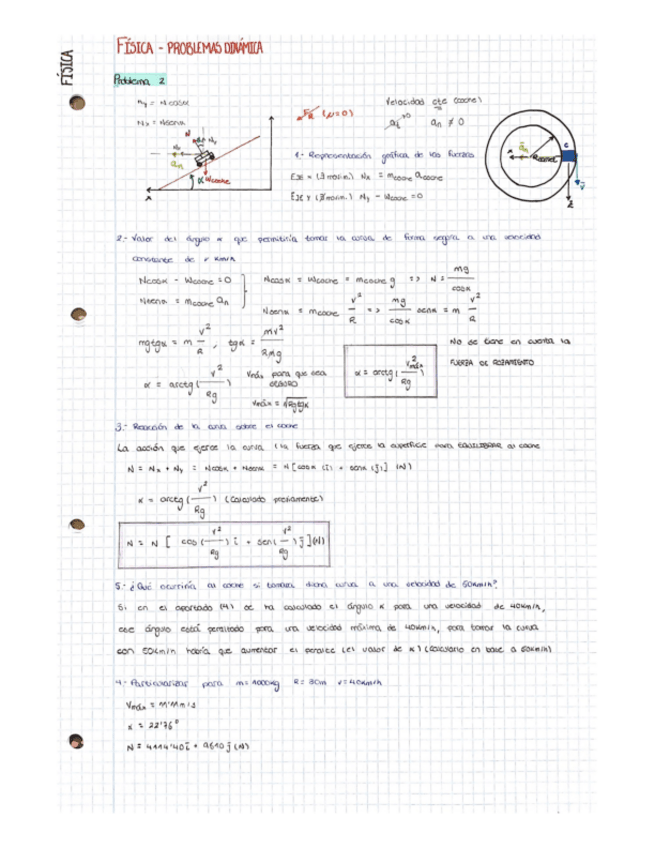 FÍSICA - PROBLEMAS DINÁMICA
FÍSICA
Problema 2
Ny = Ncosα
Nx = Nsenα
FR (μ=0)
Velocidad cte (coche)
at→0 an ≠ 0
N
Nx
Ny
an
α
Wcoche
x
1.- Representación gráfica de las fuerzas
Nx = mcoche acoche
Ny - Wcoche = 0
an
C
x
v
z
2.- Valor del ángulo α que permitiría tomar la curva de forma segura a una velocidad
constante de v km/h
Ncosα - Wcoche = 0
Nsenα = mcoche an
Ncosα = Wcoche = mcoche g => N = mg/cosα
Nsenα = mcoche v²/R => mg/cosα senα = m v²/R
mgtgα = m v²/R , tgα = mv²/Rmg
No se tiene en cuenta la
FUERZA DE ROZAMIENTO
α = arctg (v²/Rg)
Vmáx para que sea
SEGURO
Vmáx = √Rgtgα
α = arctg (v²máx/Rg)
3.- Reacción de la curva sobre el coche
La acción que ejerce la curva (la fuerza que ejerce la superficie para EQUILIBRAR al coche
N = Nx + Ny = Ncosα + Nsenα = N [cosα (i) + senα (j)] (N)
α = arctg (v²/Rg) (Calculado previamente)
N = N [ cos (v²/Rg) i + sen (v²/Rg) j ] (N)
5.- ¿Qué ocurriría al coche si tomara dicha curva a una velocidad de 50km/h?
Si en el apartado (4) se ha calculado el ángulo α para una velocidad de 40km/h,
ese ángulo está peraltado para una velocidad máxima de 40km/h, para tomar la curva
con 50km/h habría que aumentar el peralte (el valor de α) (calcularlo en base a 50km/h)
4.- Particularizar para m = 1000kg R = 30m v = 40km/h
Vmáx = 11'11m/s
α = 22'76°
N = 4114'40i + 9810j (N)